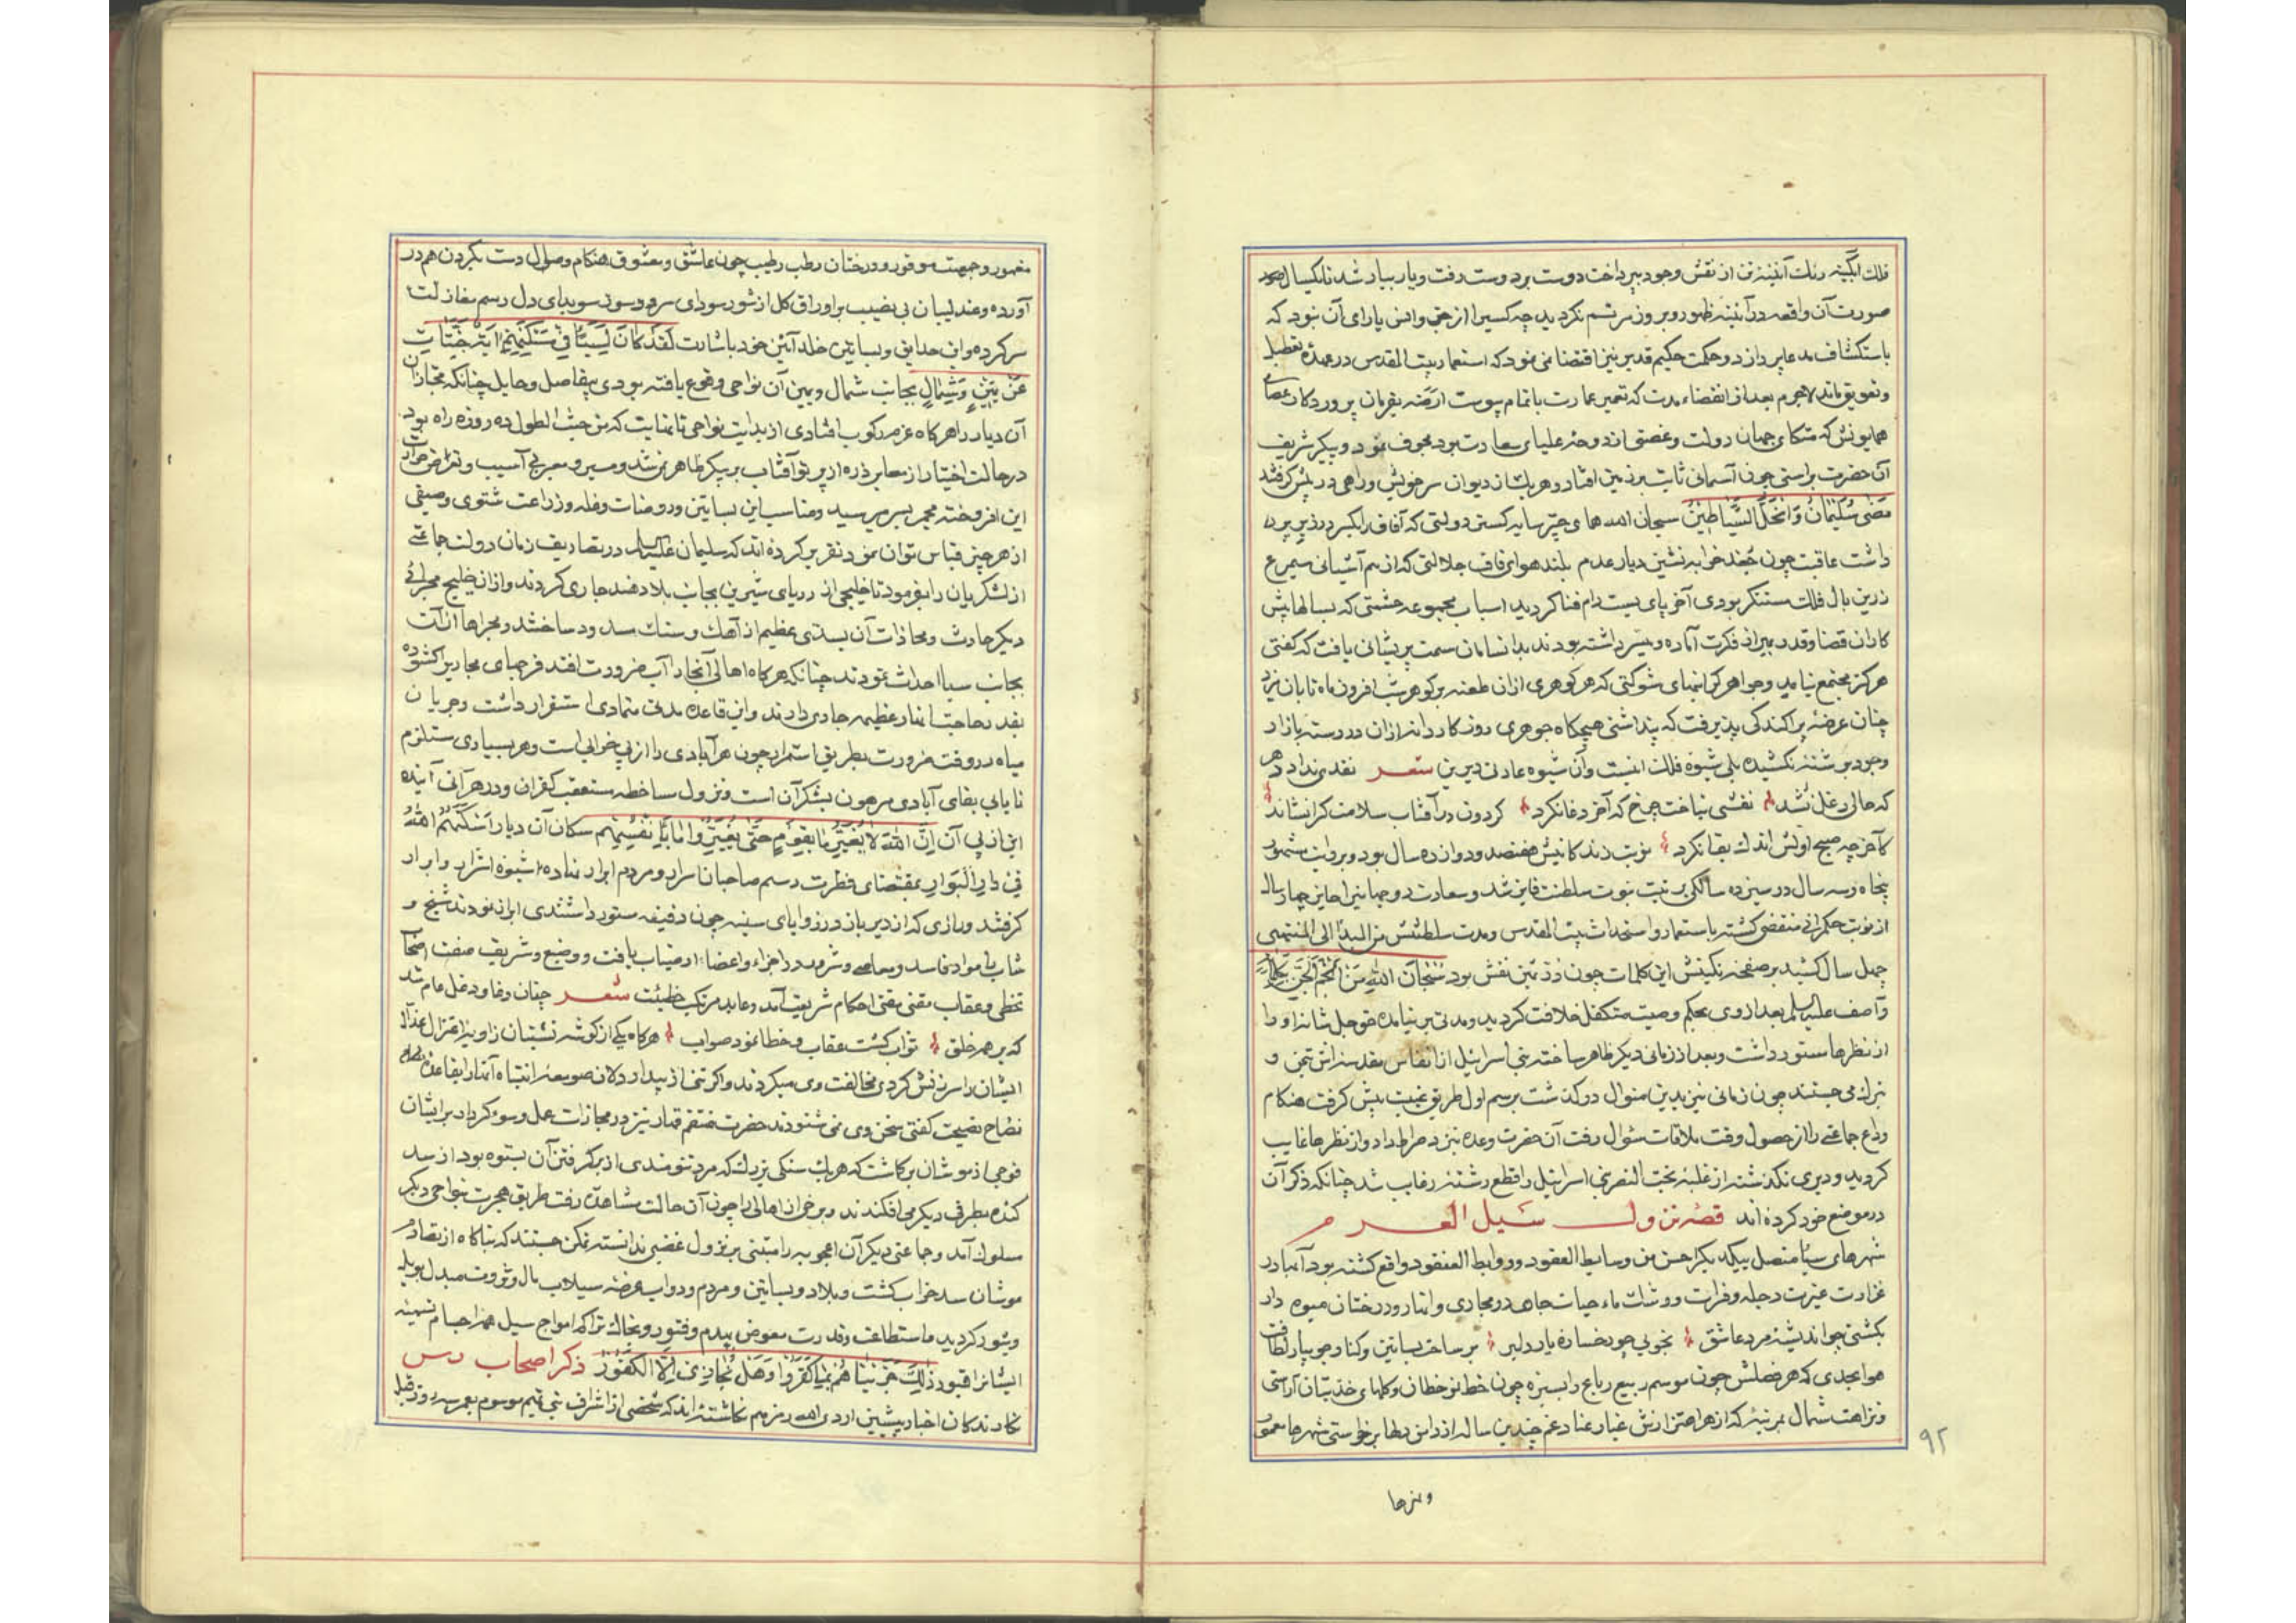 فلك آبگینه رنك آئینه تن از نقش وجود بپرداخت دوست بر دوست رفت و یار بیار شد تا یکسال
صورت آن واقعه در آئینه ظهور و بروز مرتسم نکردید چه کسی را از جن و انس یارای آن نبود که
باستکشاف مدعا پردازد و حکمت حکیم قدیر نیز اقتضا می نمود که استعمار بیت المقدس در عهده تعطیل
و تعویق نماند لاجرم بعد از انقضاء مدت که تعمیر عمارت باتمام پیوست ارضه بفرمان پروردکار عصای
همایونش که متکای جهان دولت و غصنی از دوحه علیای سعادت بود مجوف نمود و پیکر شریف
آن حضرت براستی چون آسمانی ثابت بر زمین افتاد و هریك از دیوان سر خویش و راهی در پیش کرفتند
مَضَی سُلَیْمَانُ وَانْحَلَّ الشَّیَاطِینُ سبحان الله همای چتر سایه کستر دولتی که آفاق را یکسر در زیر پر
داشت عاقبت چون جغد خرابه نشین دیار عدم بلند هوای قاف جلالتی که از هم آشیانی سیمرغ
زرین بال فلك مستنکر بودی آخر پای بست دام فنا کردید اسباب مجموعه حشمتی که بسالهایش
کاران قضا و قدر بمیزان فکرت آماده و میسر داشته بودند بدانسامان سمت پریشانی یافت که کفتی
هرکز مجتمع نیامد و جواهر کرانبهای شوکتی که هر کوهری ازان طعنه بر کوهر شب افروز ماه تابان زد
چنان عرضه پراکندکی پذیرفت که پنداشتی هیچکاه جوهری روزکار دانه ازان در رسته بازار
وجود بر شته نکشیده بلی شیوه فلك اینست و آن شیوه عادتی دیرین شعر نقدی نداد دهر
که حالی دغل نشد نقشی نباخت چرخ که آخر دغا نکرد کردون در آفتاب سلامت کرا نشاند
کآخر چو صبح اولش اندك بقا نکرد نوبت زندکانیش هفتصد و دوازده سال بود و بروایت مشهور
پنجاه و سه سال در سیزده سالکی برتبت نبوت سلطنت فایز شد و سعادت دو جهانی را حایز چهار سال
از نوبت حکمرانی منقضی کشته باستعمار و استحداث بیت المقدس و مدت سلطنتش من المبدأ الی المنتهی
چهل سال کشید بر صفحه نکینش این کلمات چون در ثمین نقش بود سُبْحَانَ اللهِ مَنْ اَلْجَمَ الْجِنَّ بِکَلِمَاتِهِ
و آصف علیه السلم بعد از وی بحکم وصیت متکفل خلافت کردید و مدتی بر نیامده حق جل شانه او را
از نظرها مستور داشت و بعد از زمانی دیکر ظاهر ساخته بنی اسرائیل از انفاس مقدسه اش تیمن و
تبرك می جستند چون زمانی نیز بدین منوال در کذشت برسم اول طریق غیبت پیش کرفت هنکام
وداع جماعتی را از حصول وقت ملاقات سئوال رفت آن حضرت وعده نیز در صراط داد و از نظرها غایب
کردید و دیری نکذشته از غلبه بخت النصر بنی اسرائیل را قطع رشته رقاب شد چنانکه ذکر آن
در موضع خود کرده اند قصه نزول سَیل العرم
شهرهای سبا متصل بیکدیکر احسن من وسایط العقود و روابط العنقود واقع کشته بود آبها در
غزارت غیرت دجله و فرات و رشك ماء حیات جاهد در مجاری و انهار و درختان میوه دار
بکشتی چو اندیشه مرد عاشق بخوبی چو رخساره یار دلبر بر ساحت بساتین و کنار جویبار لطافت
هوا بحدی که هر فصلش چون موسم ربیع رباع را بسبزه چون خط نوخطان و کلهای خد بتان آراستی
و نزاهت شمال بمرتبه که از هر اهتزازش غبار عنا و غم چندین ساله از دامن دلها برخواستی شهرها معمور
و نزها
۹۲
مغمور و جهت موفور و درختان رطب رطیب چون عاشق و معشوق هنکام وصال دست بکردن هم در
آورده و عندلیبان بی نصیب بر اوراق کل از شور سودای سر و سوز سویدای دل رسم مغازلت
سر کرده و این حدایق و بساتین خلد آئین خود باشارت لَقَدْ کَانَ لِسَبَأٍ فِی مَسْکَنِهِمْ آیَةٌ جَنَّتَانِ
عَنْ یَمِینٍ وَشِمَالٍ بجانب شمال و یمین آن نواحی وقوع یافته بودی بیفاصل و حایل چنانکه مجتازان
آن دیار را هرکاه عزم رکوب افتادی از بدایت نواحی تا نهایت که من حیث الطول ده روزه راه بود
در حالت اختیار از معابر ذره از پرتو آفتاب بر پیکر ظاهر نمی شد و مسیر و معبر بی آسیب و تعارض حرارت
این افروخته مجمر بسر میرسید و مناسب این بساتین و روضات و غله و زراعت شتوی و صیفی
از هر چیز قیاس توان نمود تقریر کرده اند که سلیمان علیه السلم در تضاریف زمان دولت جماعتی
از لشکریان را بفرمود تا خلیجی از دریای شیرین بجانب بلاد هند جاری کردند و ازان خلیج مجرائی
دیکر حادث و محاذات آن بسدی عظیم از آهك و سنك مسدود ساختند و مجراها ازان
بجانب سبا احداث نمودند چنانکه هرکاه اهالی آنجا را آب ضرورت افتد فرجهای مجاری را کشوده
بقدر حاجت انهار عظیمه جاری دارند و این قاعده مدتی متمادی استقرار داشت و جریان
میاه در وقت ضرورت بطریق استمرار چون هر آبادی را از پی خرابی است و هر بسیاری مستلزم
نایابی بقای آبادی مرهون بشکر آن است و نزول ساخطه مستعقب کفران و در هر آنی آینده
این از پی آن اِنَّ اللهَ لَا یُغَیِّرُ مَا بِقَوْمٍ حَتَّی یُغَیِّرُوا مَا بِاَنْفُسِهِمْ سکان آن دیار اَسْکَنَهُمُ اللهُ
فِی دَارِ الْبَوَارِ بمقتضای فطرت رسم صاحبان اسرار و مردم ابرار نهاده شیوه اشرار و ابرار
کرفتند و رازی که از دیر باز در زوایای سینه چون دفینه مستور داشتندی ابراز نمودند شیخ و
شاب با مواد فاسد و معاصی و شرور در اجزاء و اعضاء ارتیاب یافت و وضیع و شریف صفت اصحاب
تخطی و عقاب مفنی مفتی احکام شریعت آمد و عابد مرتکب خطیئت شعر چنان دغا و دغل عام شد
که بر هر خلق ثواب کشت عقاب و خطا نمود صواب هرکاه یکی از کوشه نشینان زاویه اعتزال
ایشان را سرزنش کردی مخالفت وی میکردند و اکر تنی از بیدار دلان صومعه انتباه آنها را بقاعده
نصاح نصیحت کفتی سخن وی نمی شنودند حضرت منتقم قهار نیز در مجازات عمل و سوء کردار بر ایشان
فوجی از موشان برکاشت که هریك سنکی بزرك که مرد تنومندی از برکرفتن آن بستوه بود از سد
کنده بطرفی دیکر می افکندند و برخی از اهالی را چون آن حالت مشاهده رفت طریق هجرت بنواحی دیکر
مسلوك آمد و جماعتی دیکر آن اعجوبه را مبتنی بر نزول غضبی ندانسته تمکن جستند که بناکاه از تصادم
موشان سد خراب کشت و بلاد و بساتین و مردم و دواب عرضه سیلاب مال و ثروت مبدل بویل
و ثبور کردید ما استطاعت و قدرت معوض بهدم و فتور و بخاك تراکم امواج سیل همر اجسام ثمینه
ایشانرا قبور ذٰلِكَ جَزَیْنَاهُمْ بِمَا کَفَرُوا وَهَلْ نُجَازِی اِلَّا الْکَفُورَ ذکر اصحاب رس
نکارندکان اخبار پیشین اردی الله رمزهم نکاشته اند که شخصی از اشراف بنی تمیم موسوم بعمر سه روز قبل